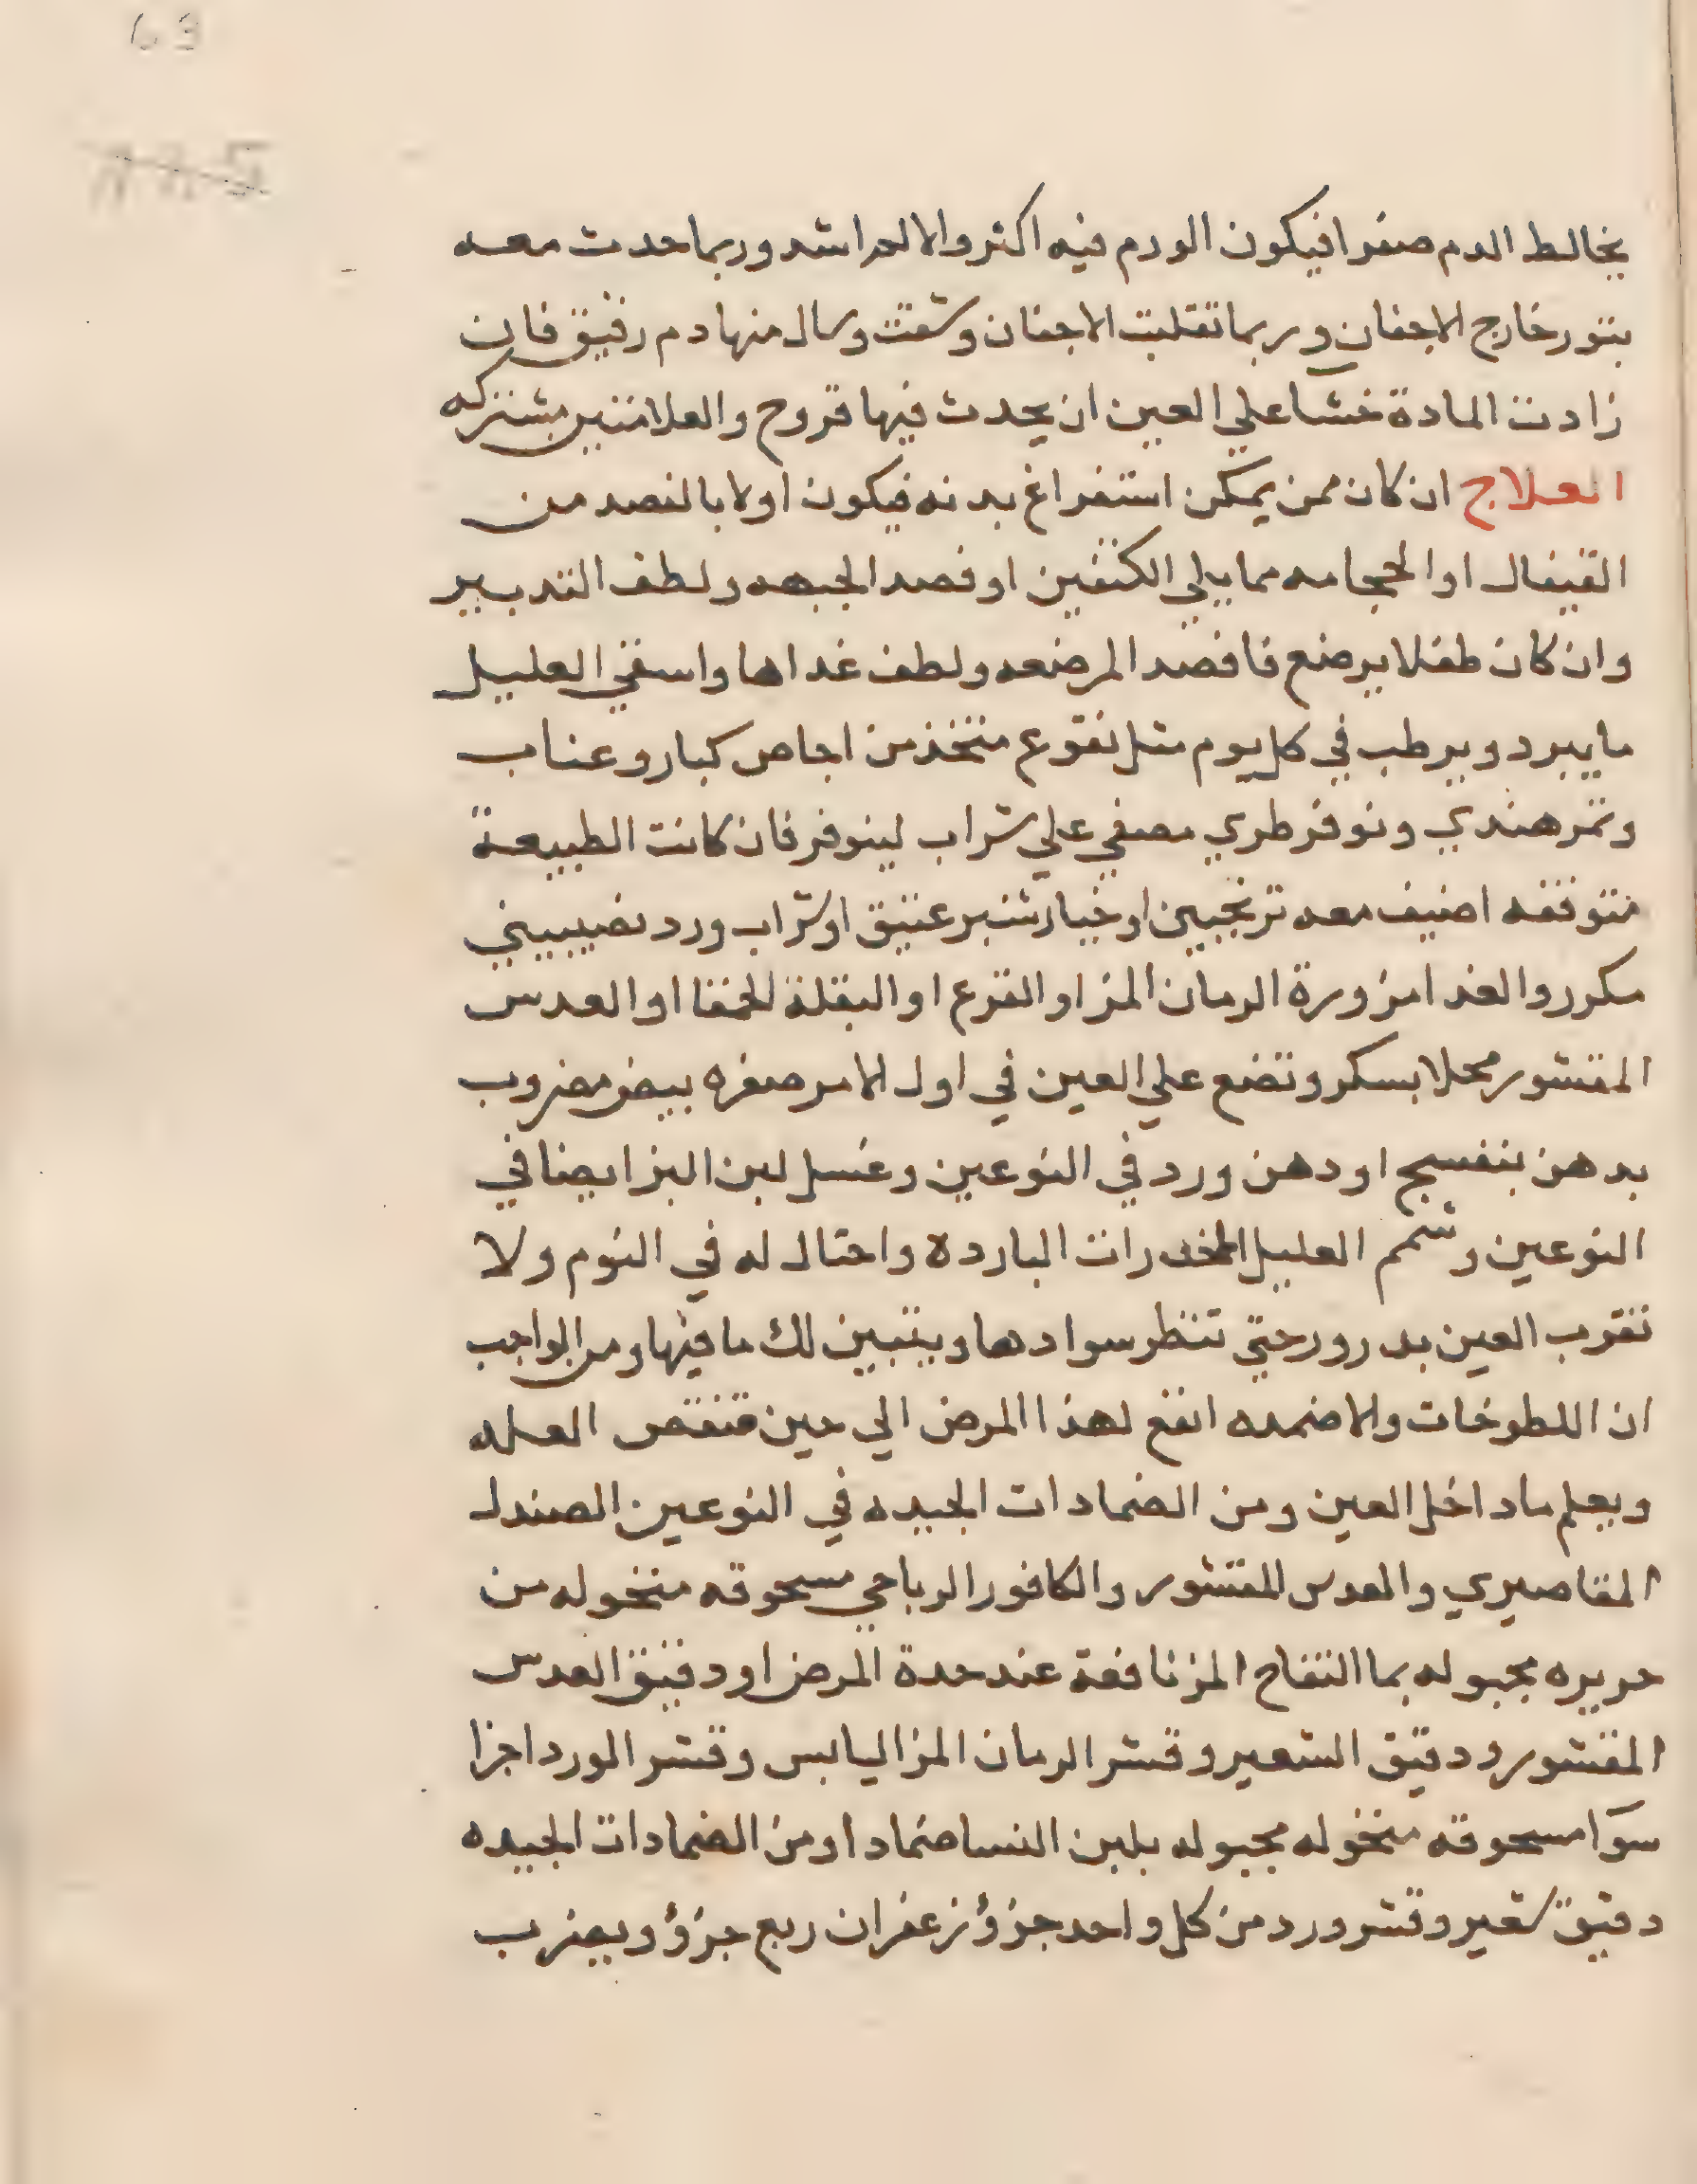 63
يخالط الدم صفرا فيكون الورم فيه اكثر والالم اشد وربما حدث معه
بثور خارج الاجفان وربما تقلبت الاجفان وشقت وسال منها دم رقيق فان
زادت المادة خشا علي العين ان يحدث فيها قروح والعلامتين مشتركه
العلاج ان كان ممن يمكن استفراغ بدنه فيكون اولا بالفصد من
القيفال او الحجامه مما يلي الكتفين او فصد الجبهه ولطف التدبير
وان كان طفلا يرضع فافصد المرضعه ولطف غداها واسقي العليل
ما يبرد ويرطب في كل يوم مثل نقوع متخذ من اجاص كبار وعناب
وتمر هندي ونوفر طري مصفي علي شراب لينوفر فان كانت الطبيعة
متوقفه اضيف معه ترنجبين او خيار شنبر عتيق او شراب ورد نصيبيني
مكرر والغدا مزورة الرمان المز او القرع او البقلة الحمقا او العدس
المقشور محلا بسكر وتضع علي العين في اول الامر صفره بيض مضروب
بدهن بنفسج او دهن ورد في النوعين وغسل لبن البز ايضا في
النوعين وشمم العليل المخدرات البارده واحتال له في النوم ولا
تقرب العين بدرور حتي تنظر سوادها ويتبين لك ما فيها ومن الواجب
ان اللطوخات والاضمده انفع لهذا المرض الي حين تنقص العله
ويعلم ما داخل العين ومن الضمادات الجيده في النوعين الصندل
المقاصيري والعدس المقشور والكافور الرباحي مسحوقه منخوله من
حريره مجبوله بما التفاح المز نافعة عند حدة المرض او دقيق العدس
المقشور ودقيق الشعير وقشر الرمان المز اليابس وقشر الورد اجزا
سوا مسحوقه منخوله مجبوله بلبن النسا ضمادا ومن الضمادات الجيده
دقيق شعير وقشر ورد من كل واحد جزؤ زعفران ربع جزؤ ويضرب